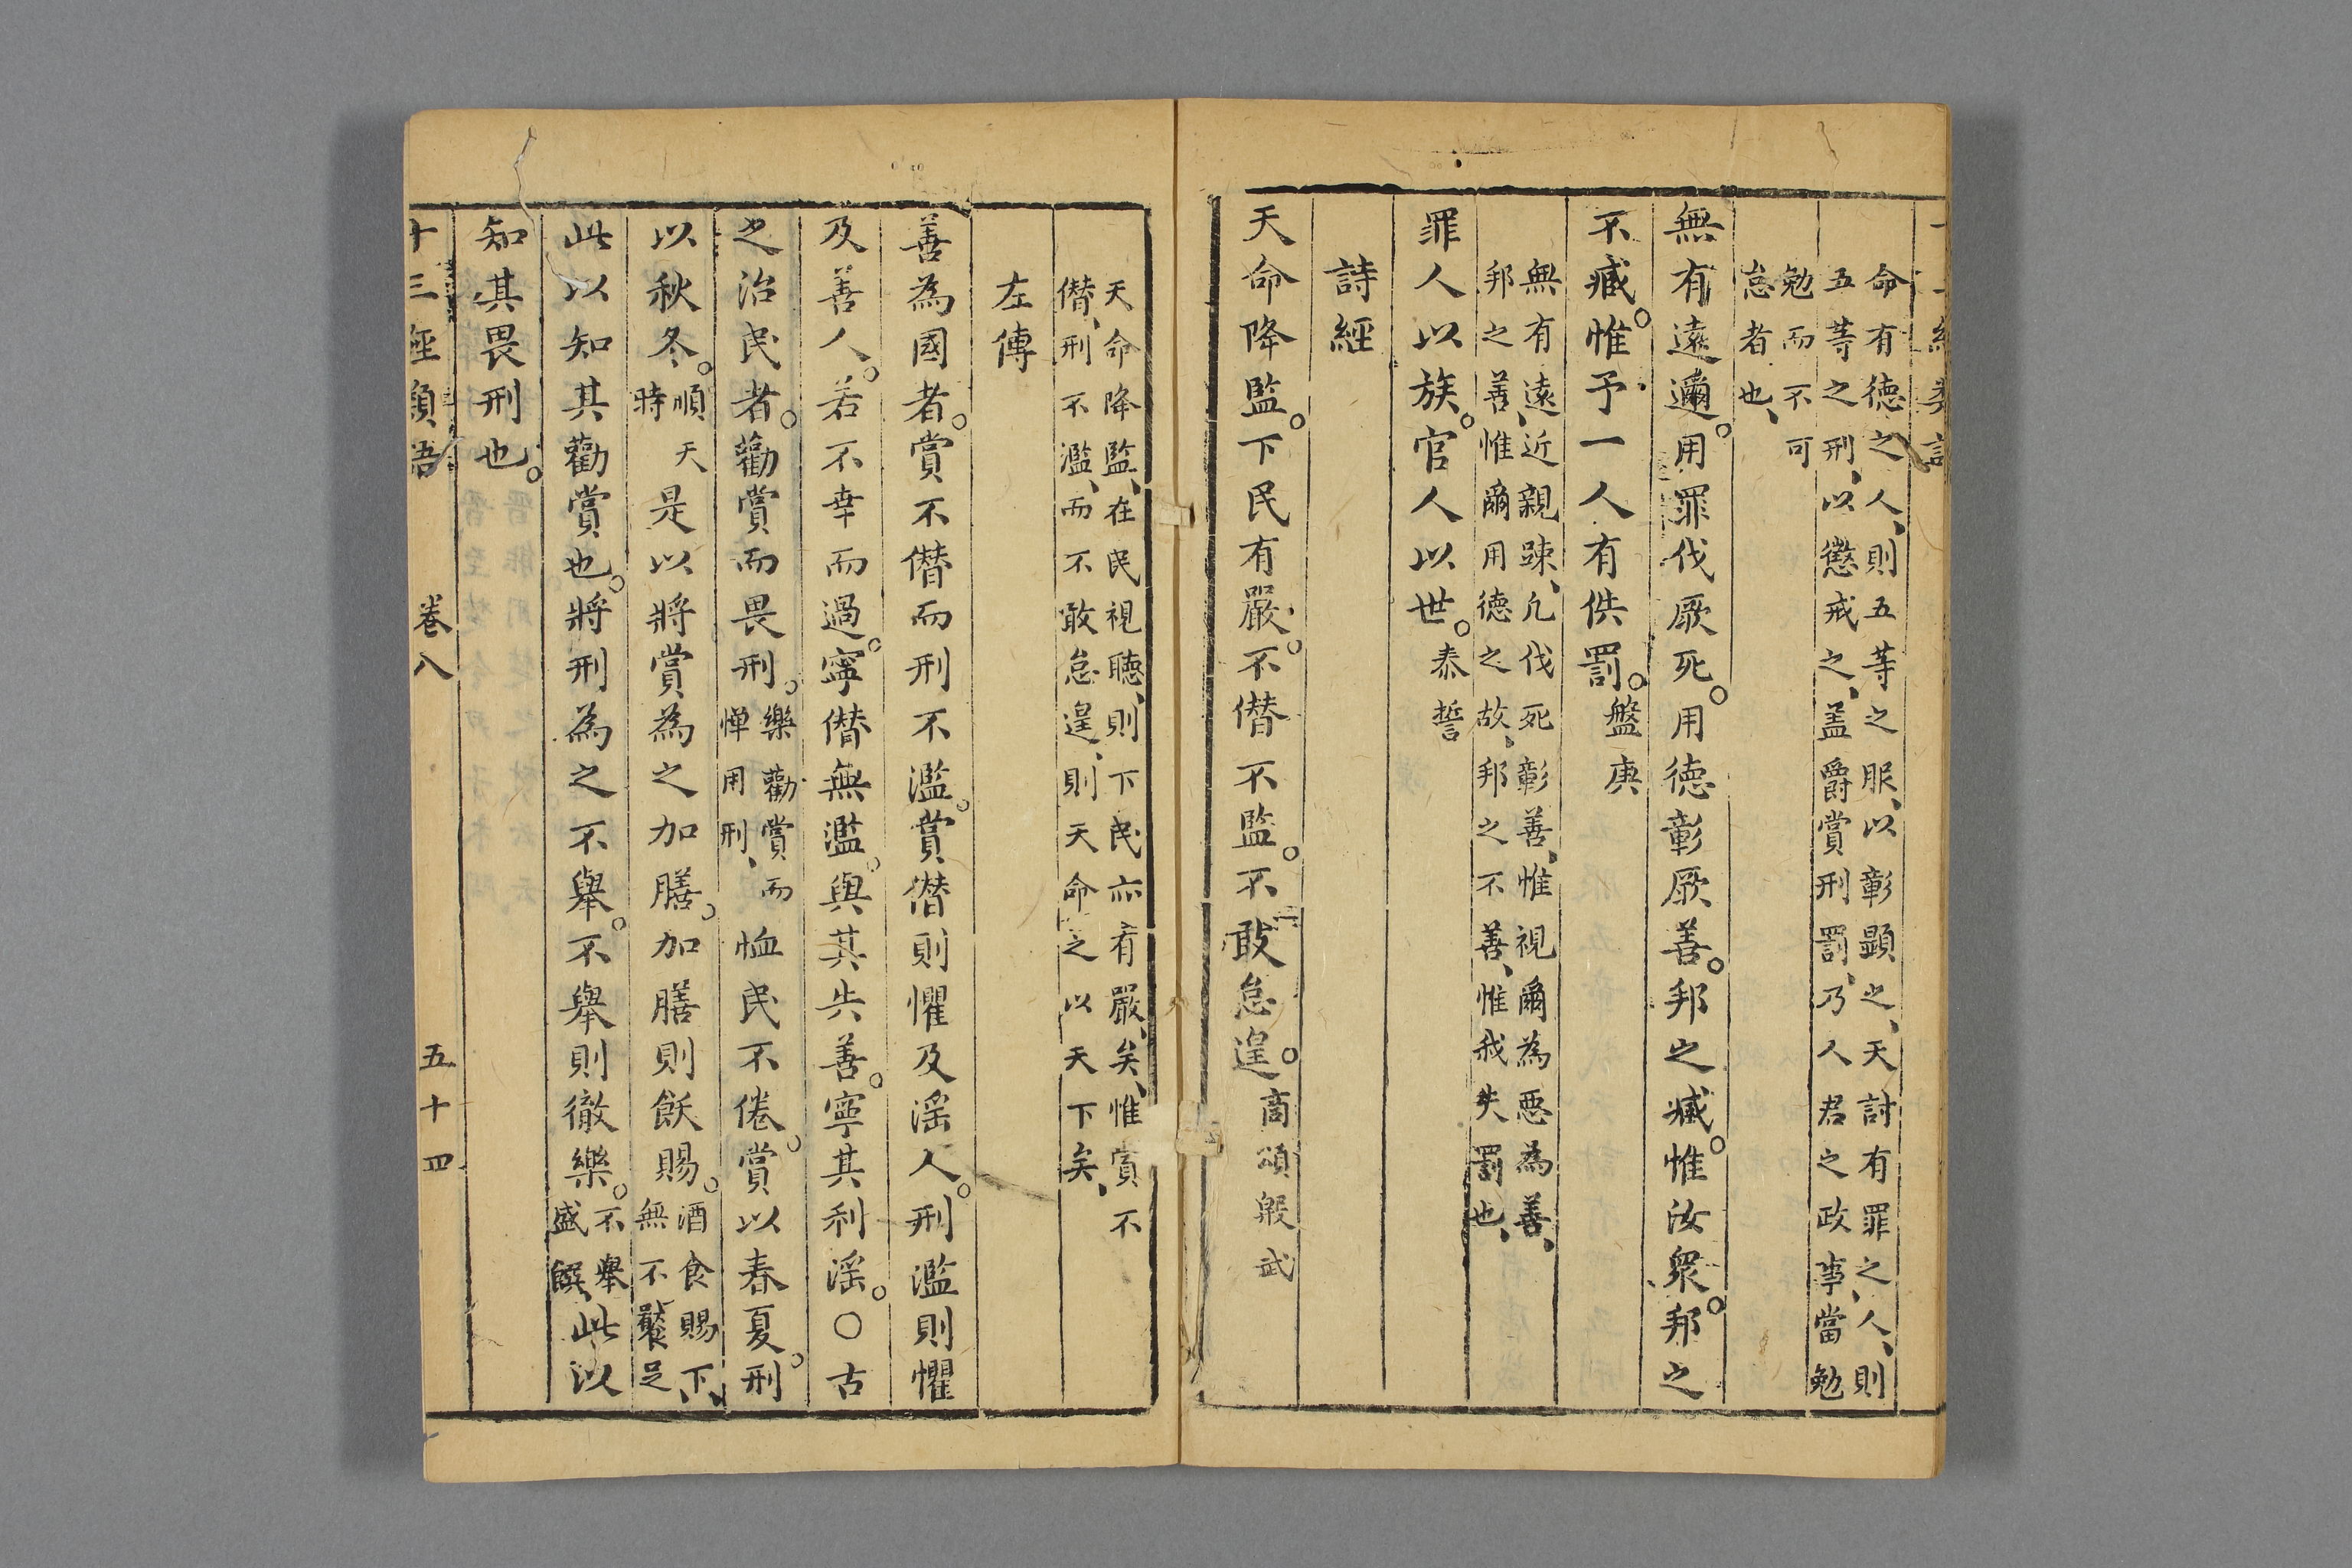 命有徳之人、則五等之服、以彰顕之、天討有罪之、人、則
五等之刑、以懲戒之、盖爵賞刑罰、乃人君之政事、當勉
勉而不可
怠者也、
無有遠邇。用罪伐厥死。用徳彰厥善。邦之臧。惟汝衆。邦之
不臧。惟予一人有佚罰。盤庚
無有遠近親踈、凢伐死彰善、惟視爾為惡為善、
邦之善、惟爾用徳之故、邦之不善、惟我失罰也、
罪人以族。官人以世。泰誓
詩經
天命降監。下民有嚴。不僭不監。不敢怠遑。商頌殷武
天命降監、在民視聽、則下民亦有嚴、矣、惟賞不
僭、刑不濫、而不敢怠遑、則天命之以天下矣、
左傳
善為國者。賞不僭而刑不濫。賞僭則懼及滛人。刑濫則懼
及善人。若不幸而過。寧僭無濫。與其失善。寧其利滛。○古
之治民者。勸賞而畏刑。樂勸賞而
憚用刑、
恤民不倦。賞以春夏。刑
以秋冬。順天
時
是以將賞為之加膳。加膳則飫賜。酒食賜下、
無不饜足
此以知其勸賞也。將刑為之不舉。不舉則徹樂。不舉
盛饌、
此以
知其畏刑也。
十三經類語 卷八 五十四